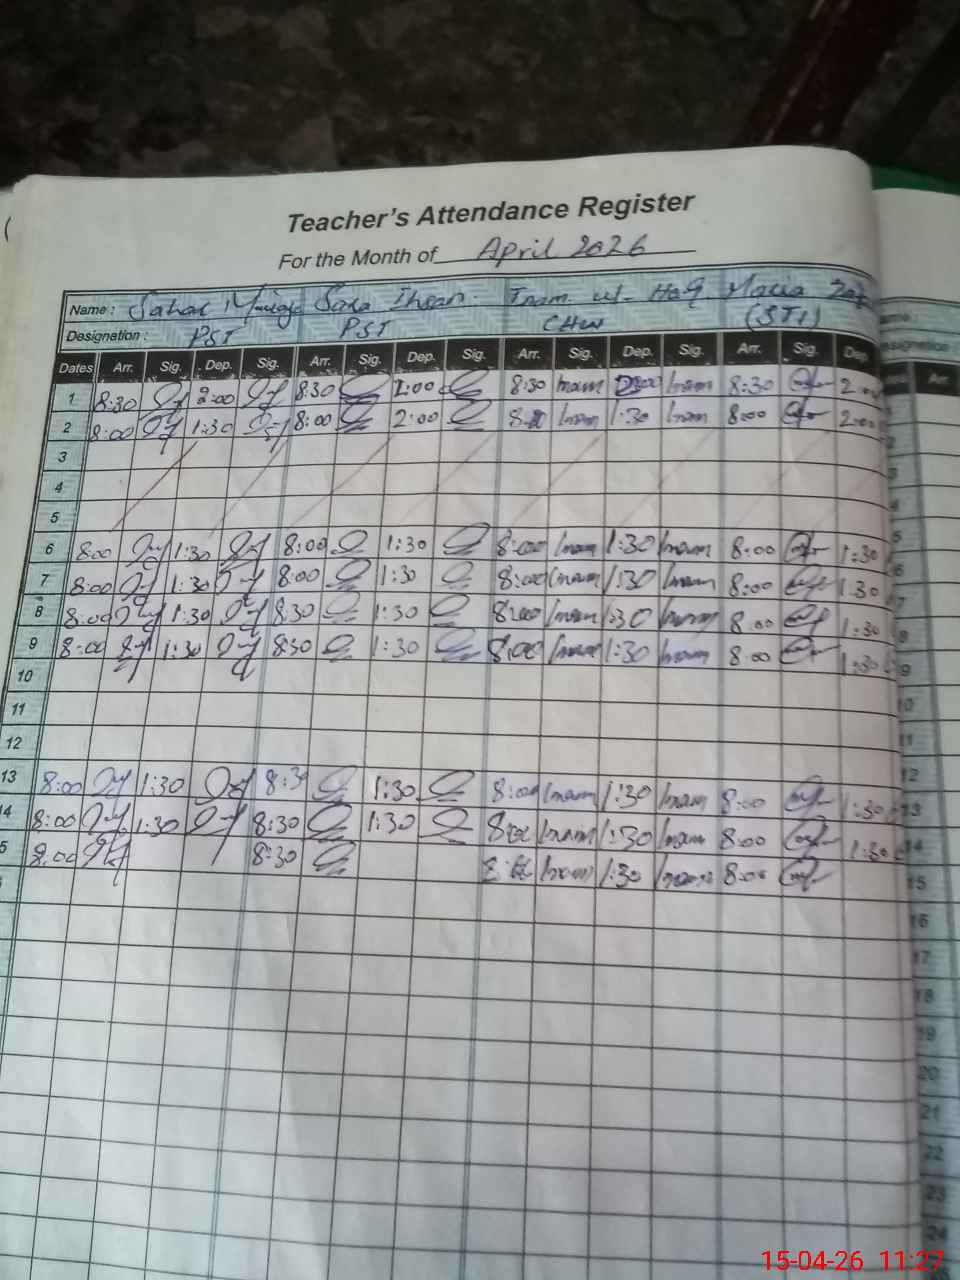 Teacher's Attendance Register
For the Month of April 2026
Name : Sahar Sara Ihsan. Inam ul- Haq. Maria
Designation : PST PST CHW (ST1)
Dates Arr. Sig. Dep. Sig. Arr. Sig. Dep. Sig. Arr. Sig. Dep. Sig. Arr. Sig. Dep.
1 8:30 2:00 8:30 2:00 8:30 Inam Inam 8:30 2:00
2 8:00 1:30 8:00 2:00 Inam 1:30 Inam 8:00 2:00
3
4
5
6 8:00 1:30 8:00 1:30 8:00 Inam 1:30 Inam 8:00 1:30
7 8:00 1:30 8:00 1:30 8:00 Inam 1:30 Inam 8:00 1:30
8 8:00 1:30 8:30 1:30 8:00 Inam 1:30 Inam 8:00 1:30
9 8:00 1:30 8:30 1:30 8:00 Inam 1:30 Inam 8:00 1:30
10
11
12
13 8:00 1:30 8:30 1:30 8:00 Inam 1:30 Inam 8:00 1:30
14 8:00 1:30 8:30 1:30 8:00 Inam 1:30 Inam 8:00 1:30
5 8:00 8:30 Inam 1:30 Inam 8:00
Arr.
9
10
11
12
13
14
15
16
17
18
19
20
21
22
23
24
15-04-26 11:27